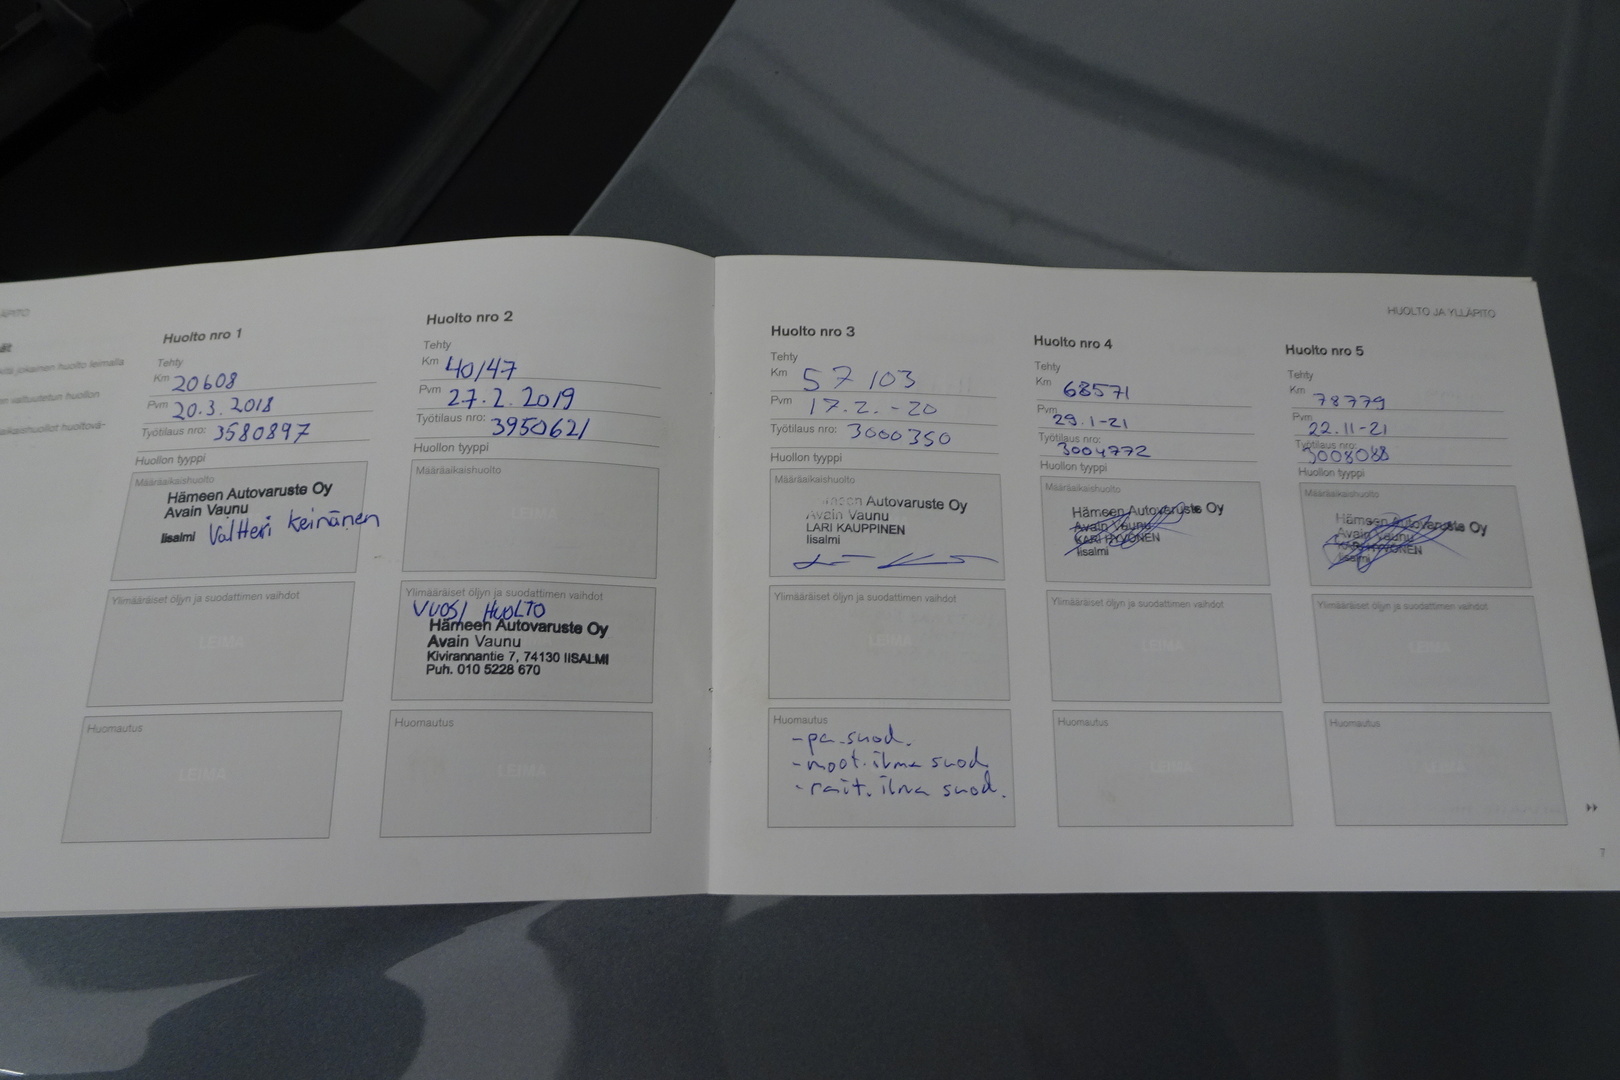 HUOLTO JA YLLÄPITO
jokainen huolto leimalla
valtuutetun huollon
Huolto nro 1
Tehty
Km 20608
Pvm 20.3.2018
Työtilaus nro: 3580897
Huollon tyyppi
Määräaikaishuolto
Hämeen Autovaruste Oy
Avain Vaunu
Iisalmi Valtteri Keinänen
Ylimääräiset öljyn ja suodattimen vaihdot
LEIMA
Huomautus
LEIMA
Huolto nro 2
Tehty
Km 40147
Pvm 27.2.2019
Työtilaus nro: 3950621
Huollon tyyppi
Määräaikaishuolto
LEIMA
Ylimääräiset öljyn ja suodattimen vaihdot
VUOSI HUOLTO
Hämeen Autovaruste Oy
Avain Vaunu
Kivirannantie 7, 74130 IISALMI
Puh. 010 5228 670
Huomautus
LEIMA
Huolto nro 3
Tehty
Km 57103
Pvm 17.2.-20
Työtilaus nro: 3000350
Huollon tyyppi
Määräaikaishuolto
Autovaruste Oy
Avain Vaunu
LARI KAUPPINEN
Iisalmi
Ylimääräiset öljyn ja suodattimen vaihdot
LEIMA
Huomautus
-pa.suod.
-moot.ilma suod.
-rait.ilma suod.
Huolto nro 4
Tehty
Km 68571
Pvm 29.1-21
Työtilaus nro: 3004772
Huollon tyyppi
Määräaikaishuolto
Hämeen Autovaruste Oy
Avain Vaunu
KARI HYVÖNEN
Iisalmi
Ylimääräiset öljyn ja suodattimen vaihdot
LEIMA
Huomautus
LEIMA
Huolto nro 5
Tehty
Km 78779
Pvm 22.11-21
Työtilaus nro: 3008088
Huollon tyyppi
Määräaikaishuolto
Hämeen Autovaruste Oy
Avain Vaunu
KARI HYVÖNEN
Iisalmi
Ylimääräiset öljyn ja suodattimen vaihdot
LEIMA
Huomautus
LEIMA
7